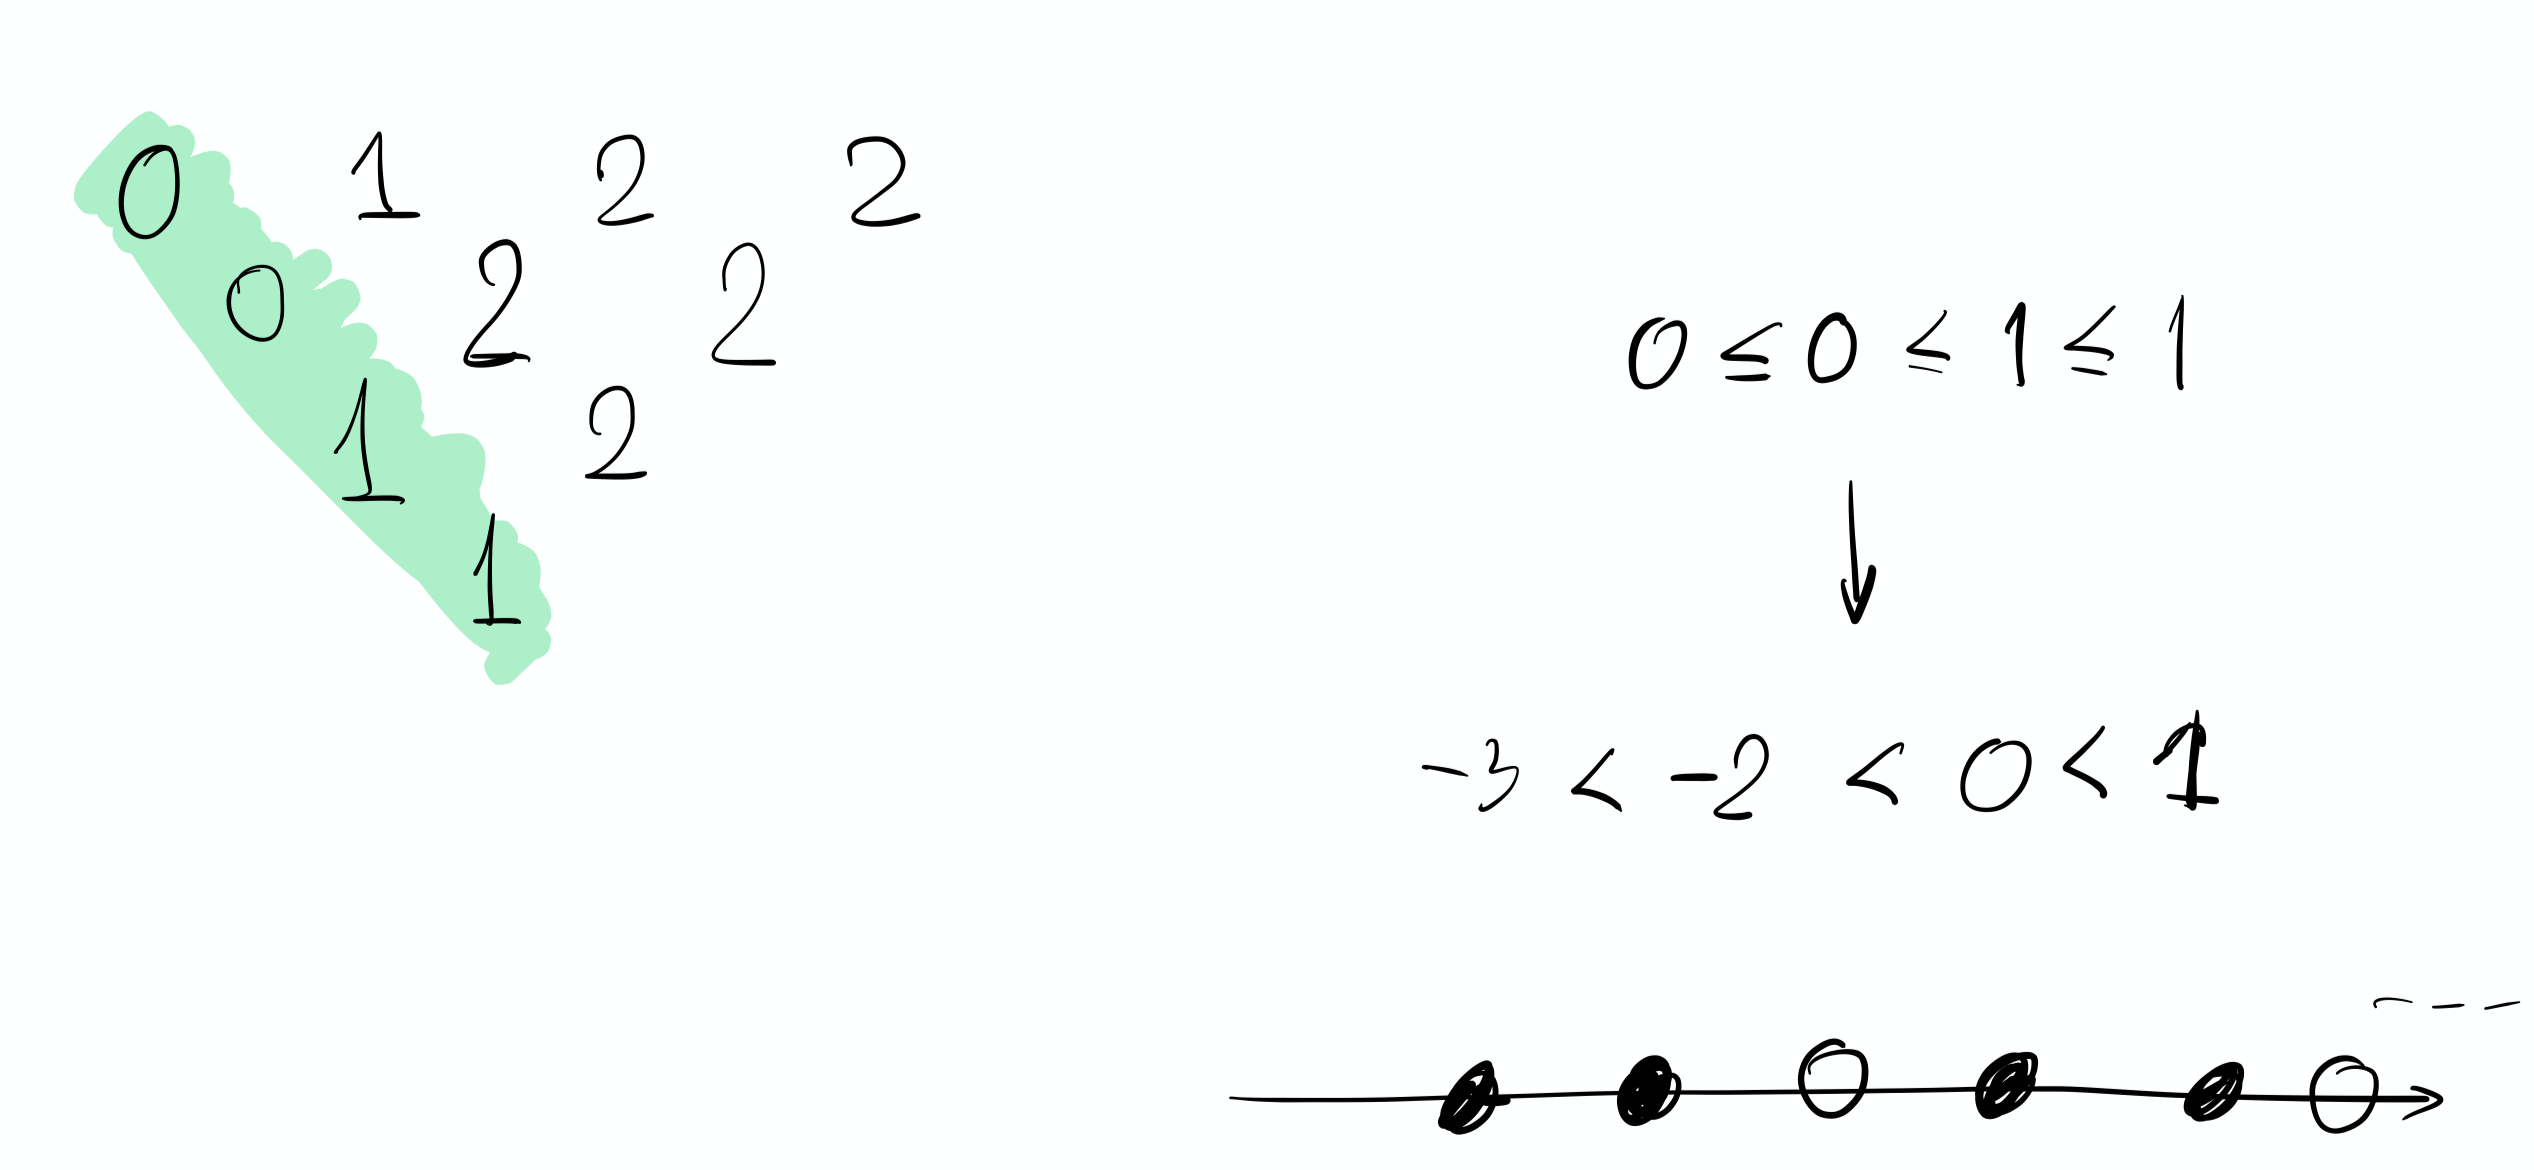 0 1 2 2
0 2 2
1 2
1
0 ≤ 0 ≤ 1 ≤ 1
-3 < -2 < 0 < 1